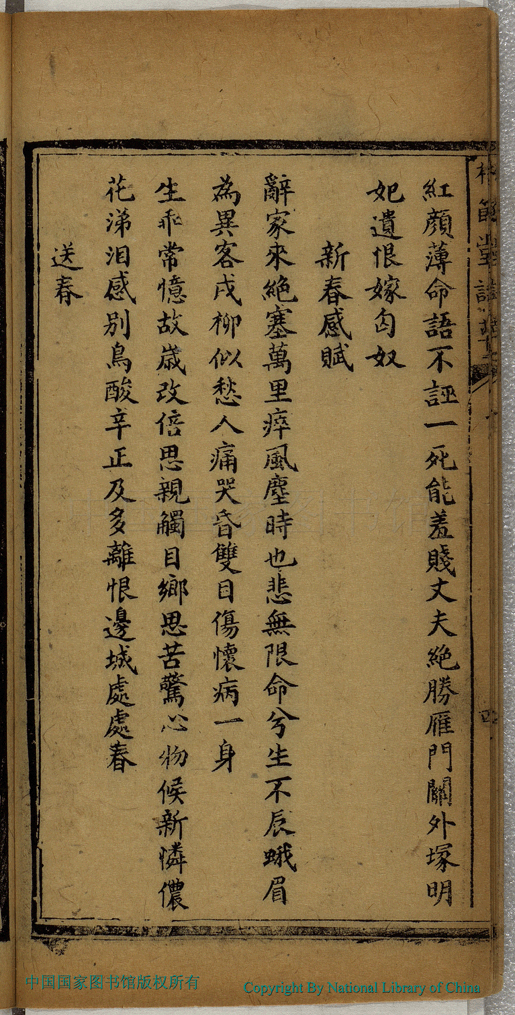 紅顏薄命語不誣一死能羞賤丈夫絶勝雁門關外塚明
妃遺恨嫁匈奴
新春感賦
辭家來絶塞萬里瘁風塵時也悲無限命兮生不辰蛾眉
為異客戍柳似愁人痛哭昏雙目傷懷病一身
生乖常憶故歲改倍思親觸目鄉思苦驚心物候新憐儂
花涕泪感别鳥酸辛正及多離恨邊城處處春
送春
中国国家图书馆版权所有
Copyright By National Library of China